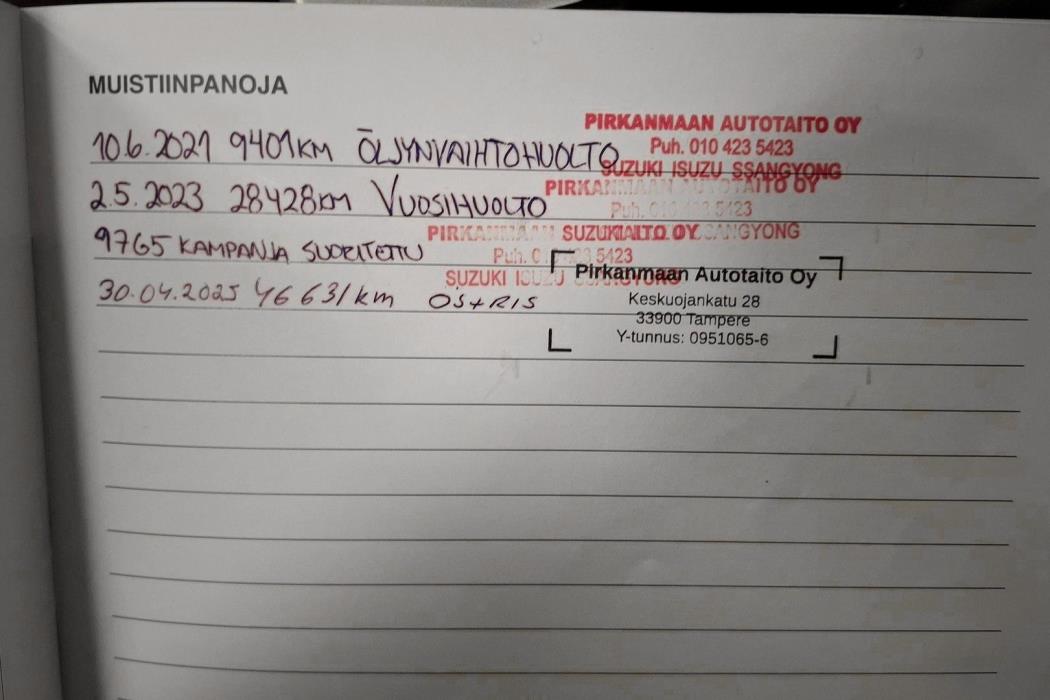 MUISTIINPANOJA
10.6.2021 9401KM ÖLJYNVAIHTOHUOLTO
PIRKANMAAN AUTOTAITO OY
Puh. 010 423 5423
SUZUKI ISUZU SSANGYONG
2.5.2023 28428KM VUOSIHUOLTO
PIRKANMAAN AUTOTAITO OY
Puh. 010 423 5423
9765 KAMPANJA SUORITETTU
PIRKANMAAN
SUZUKI
SSANGYONG
Puh. 5423
SUZUKI ISUZU SSANGYONG
30.04.2025 46631km ÖS+RIS
Pirkanmaan Autotaito Oy
Keskuojankatu 28
33900 Tampere
Y-tunnus: 0951065-6